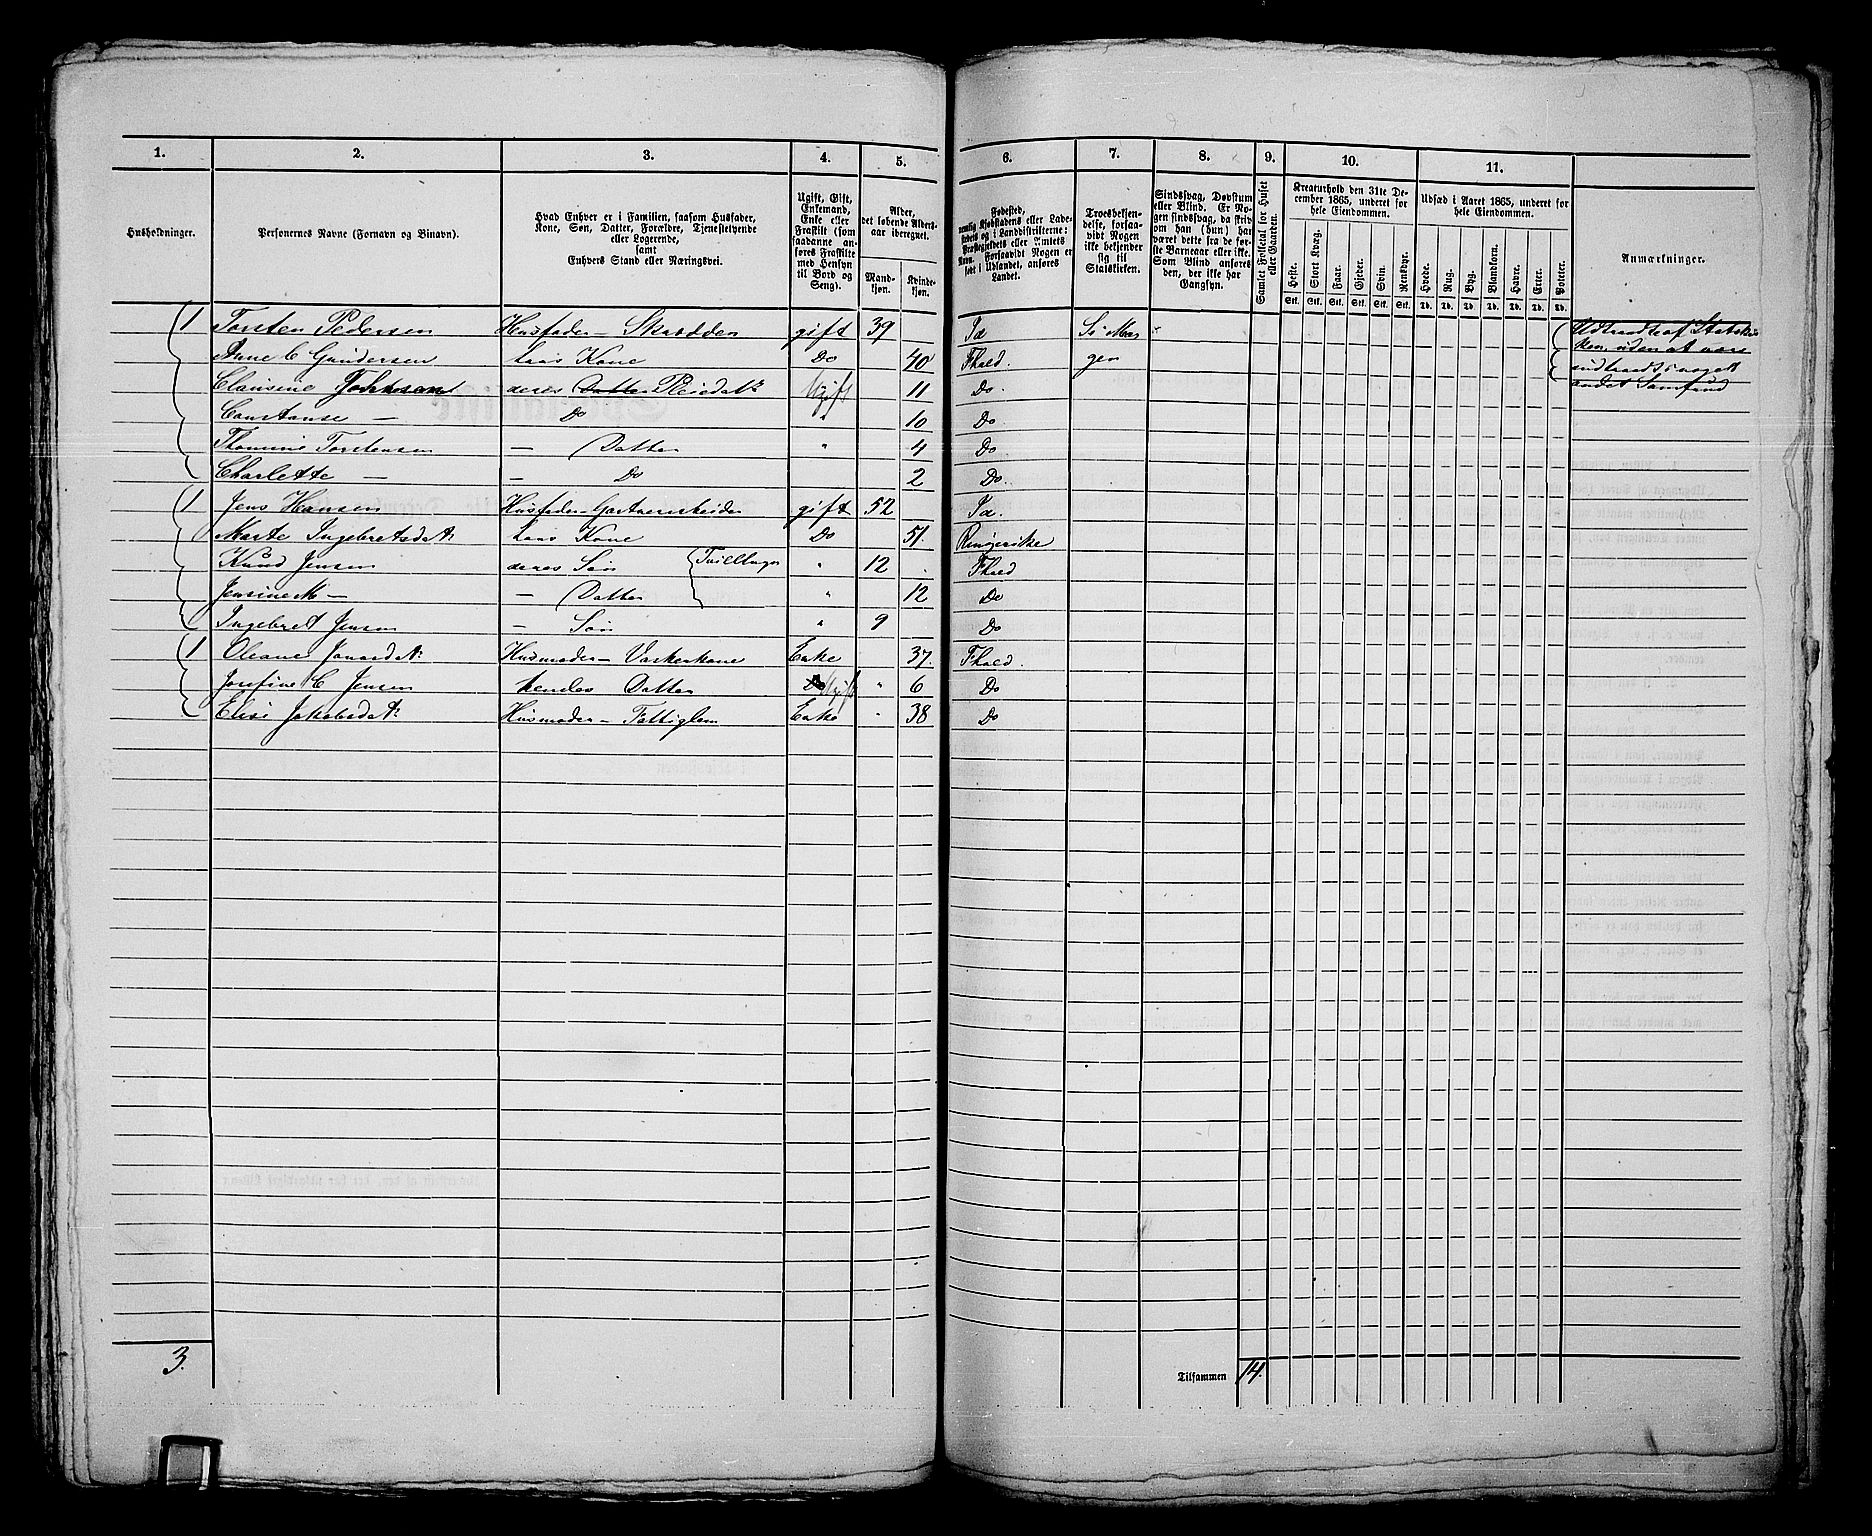 1. 2. 3. 4. 5. 6. 7. 8. 9. 10. 11.
Husholdninger.
Personernes Navne (Fornavn og Binavn).
Hvad Enhver er i Familien, saasom Husfader,
Kone, Søn, Datter, Forældre, Tjenestetyende
eller Logerende,
samt
Enhvers Stand eller Næringsvei.
Ugift, Gift,
Enkemand,
Enke eller
Fraskilt (som
saadanne an-
føres Fraskilte
med Hensyn
til Bord og
Seng).
Alder,
det løbende Alders-
aar iberegnet.
Mand-
kjøn.
Kvinde-
kjøn.
Fødested,
nemlig Kjøbstadens eller Lade-
stedets og i Landdistrikterne:
Præstegjeldets eller Amtets
Navn. Forsaavidt Nogen er
født i Udlandet, anføres
Landet.
Troesbekjen-
delse, forsaa-
vidt Nogen
ikke bekjender
sig til
Statskirken.
Sindssvag, Døvstum
eller Blind. Er No-
gen sindssvag, da skriv
om han (hun) har
været dette fra de før-
ste Barneaar eller ikke.
Som Blind anføres
den, der ikke har
Gangsyn.
Samlet Folketal for Huset
eller Gaarden.
Kreaturhold den 31te De-
cember 1865, underet for
hele Eiendommen.
Heste. Stort Kvæg. Faar. Gjeder. Svin. Rensdyr.
Stk. Stk. Stk. Stk. Stk. Stk.
Udsæd i Aaret 1865, underet for
hele Eiendommen.
Hvede. Rug. Byg. Blandkorn. Havre. Erter. Poteter.
Td. Td. Td. Td. Td. Td. Td.
Anmærkninger.
1 Torsten Pedersen Husfader – Skrædder gift 39 Id Udtraadt af Statskir
Anne C Gundersen hans Kone Do 40 Fhald. gen ken uden at være
Clausine Johnsen deres Datter Pleiedatr Ugift 11 Do indtraadt i noget
andet Samfund
Constanse — Do " 10 Do
Thomine Torstensen — Datter " 4 Do
Charlotte — — Do 2 Do
1 Jens Hansen Husfader – gift 52 Id.
Marte Ingebretsdat: hans Kone Do 51 Ringerike
Knud Jensen deres Søn Tvillinger " 12 Fhald
Jensine M — — Datter " 12 Do
Ingebret Jensen — Søn " 9 Do
1 Oleane Husmoder – Vaskerkone Enke 37. Fhald.
Josefine C Jensen hendes Datter Do Ugift " 6 Do
Elise Jakobsdat: Husmoder – Fattiglem Enke " 38 Do
3.
Tilsammen 14.